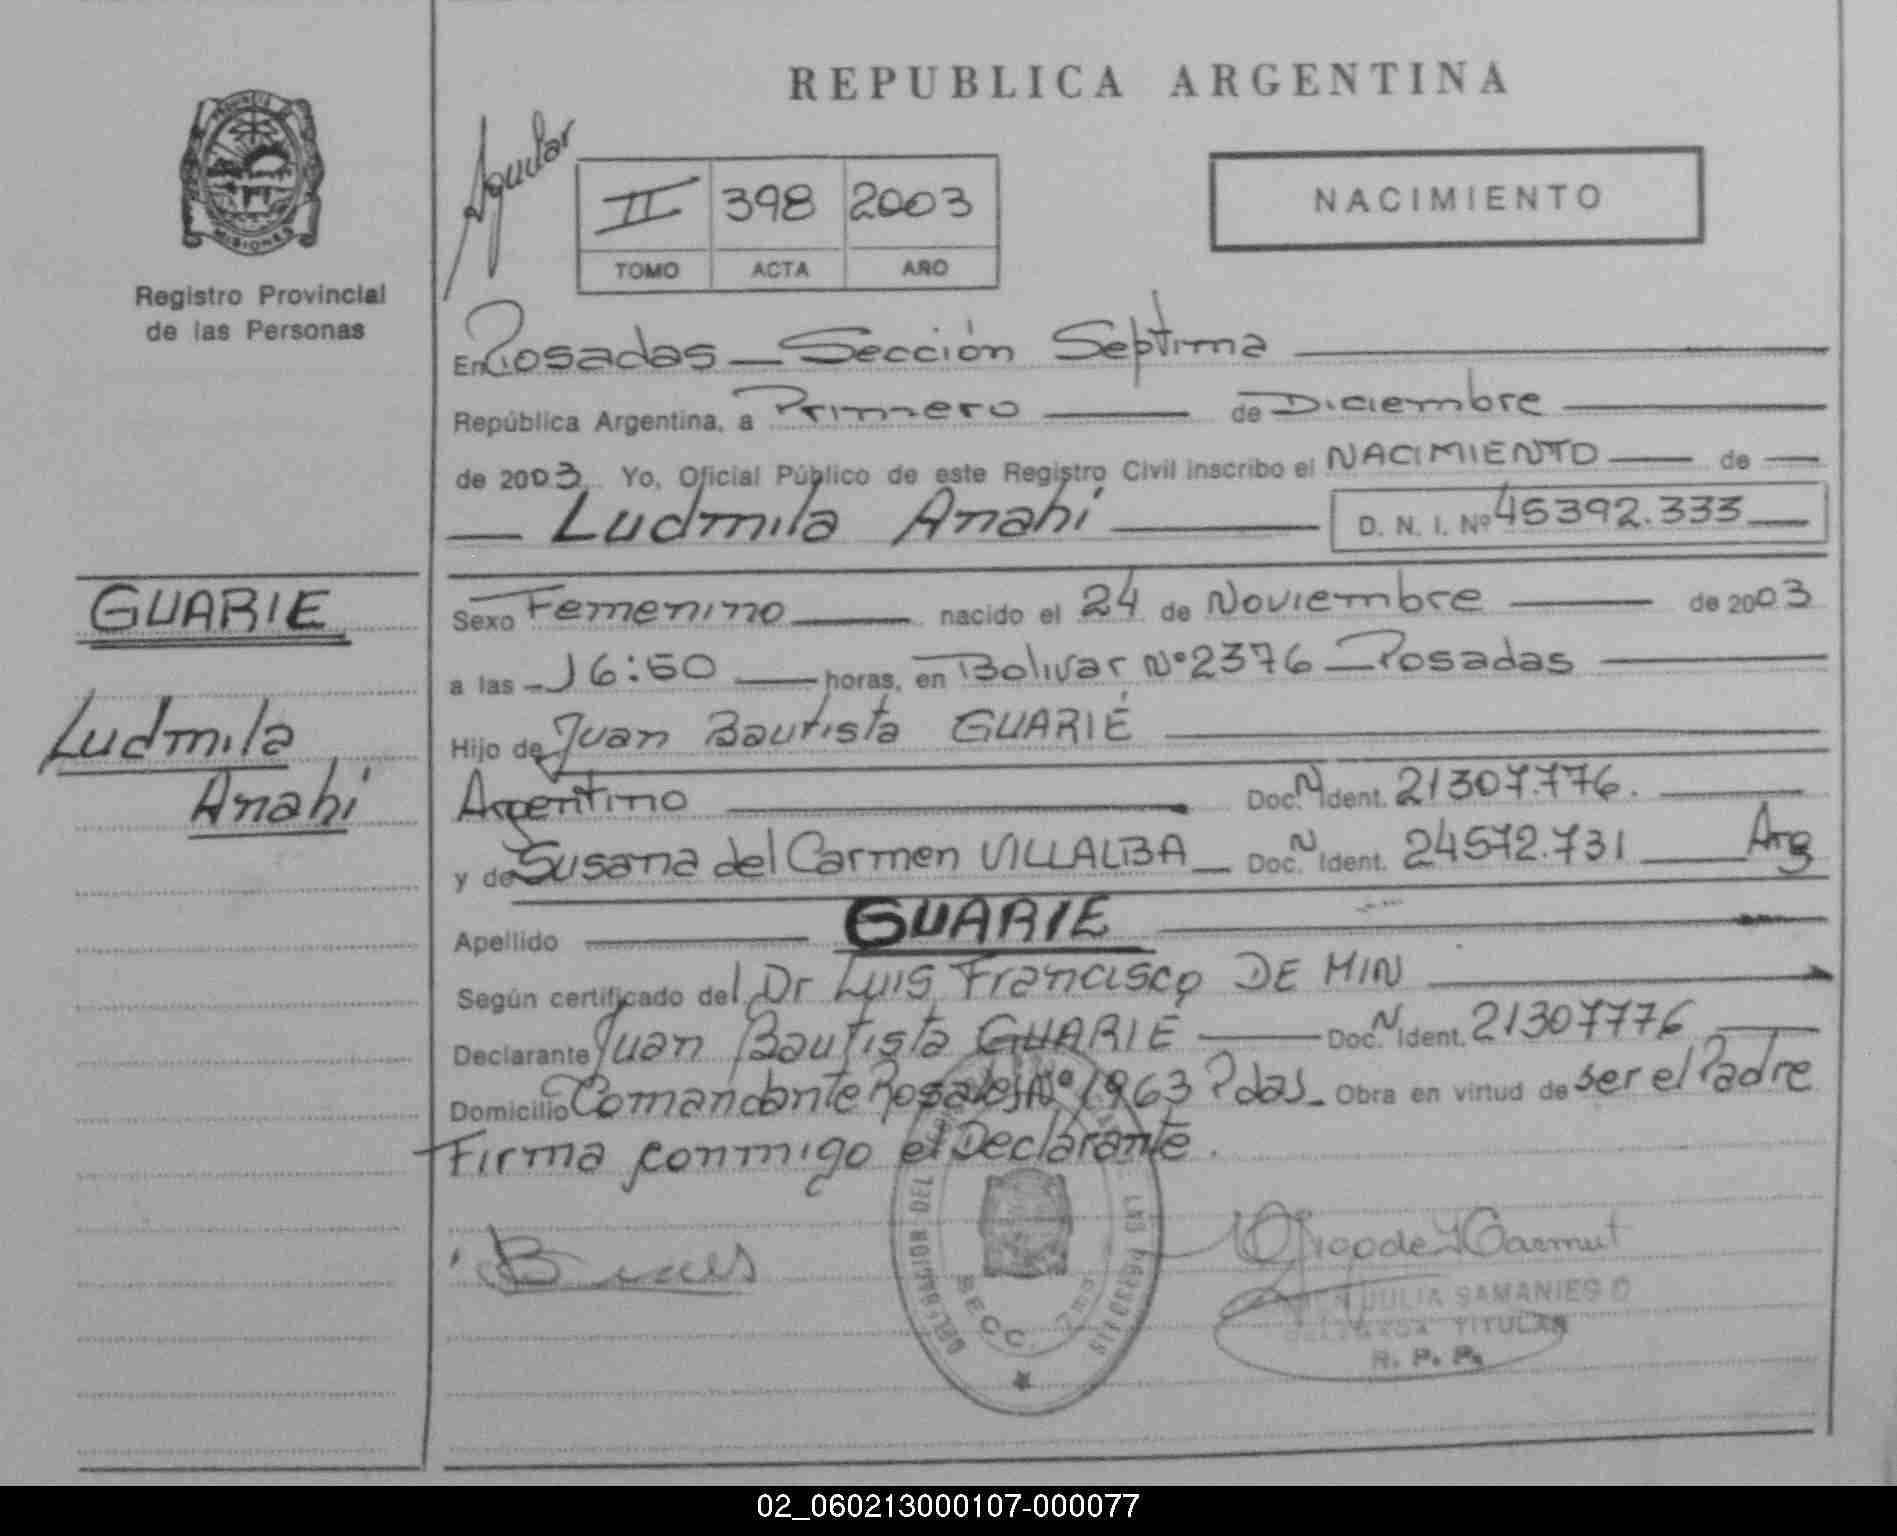 REPUBLICA ARGENTINA
PROVINCIA DE
MISIONES
Registro Provincial
de las Personas
Aguilar
II 398 2003
TOMO ACTA AÑO
NACIMIENTO
En Posadas — Sección Septima
República Argentina, a Primero — de Diciembre
de 2003 Yo, Oficial Público de este Registro Civil inscribo el NACIMIENTO — de —
— Ludmila Anahi — D. N. I. Nº 45392.333 —
GUARIE
Ludmila
Anahi
Sexo Femenino — nacido el 24 de Noviembre — de 2003
a las — 16:50 — horas, en Bolivar Nº 2376 — Posadas —
Hijo de Juan Bautista GUARIÉ
Argentino — Doc. N Ident. 21307.776. —
y de Susana del Carmen VILLALBA — Doc. N Ident. 24572.731 — Arg
Apellido — GUARIE —
Según certificado del Dr Luis Francisco DE MIN —
Declarante Juan Bautista GUARIE — Doc. N Ident. 21307776 —
Domicilio Comandante Rosales Nº 1963 Pdas — Obra en virtud de ser el Padre
Firma conmigo el Declarante.
DELEGACION DEL LAS PERSONAS
SECC.
JULIA SAMANIEGO
DELEGADA TITULAR
R. P. P.
02_060213000107-000077